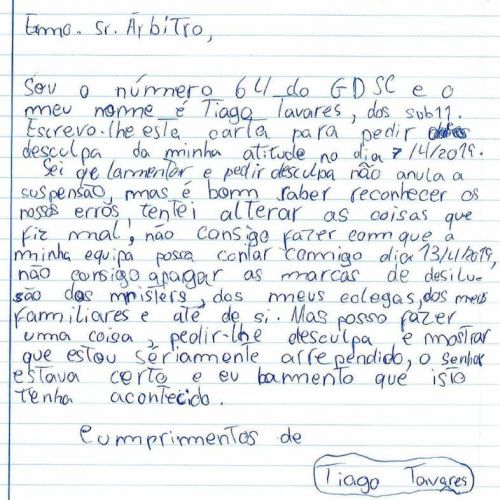 Exmo. Sr. Árbitro,
Sou o número 64 do GDSC e o
meu nome é Tiago Tavares, dos sub11.
Escrevo-lhe esta carta para pedir
desculpa da minha atitude no dia 7/4/2019.
Sei qe lamentar e pedir desculpa não anula a
suspensão, mas é bom saber reconhecer os
nossos erros, tentei alterar as coisas que
fiz mal, não consigo fazer com que a
minha equipa possa contar commigo dia 13/4/2019,
não consigo apagar as marcas de desilu-
são dos misters, dos meus colegas, dos meus
familiares e até de si. Mas posso fazer
uma coisa, pedir-lhe desculpa e mostrar
que estou sériamente arrependido, o senhor
estava certo e eu lamento que isto
tenha acontecido.
Cumprimentos de
Tiago Tavares